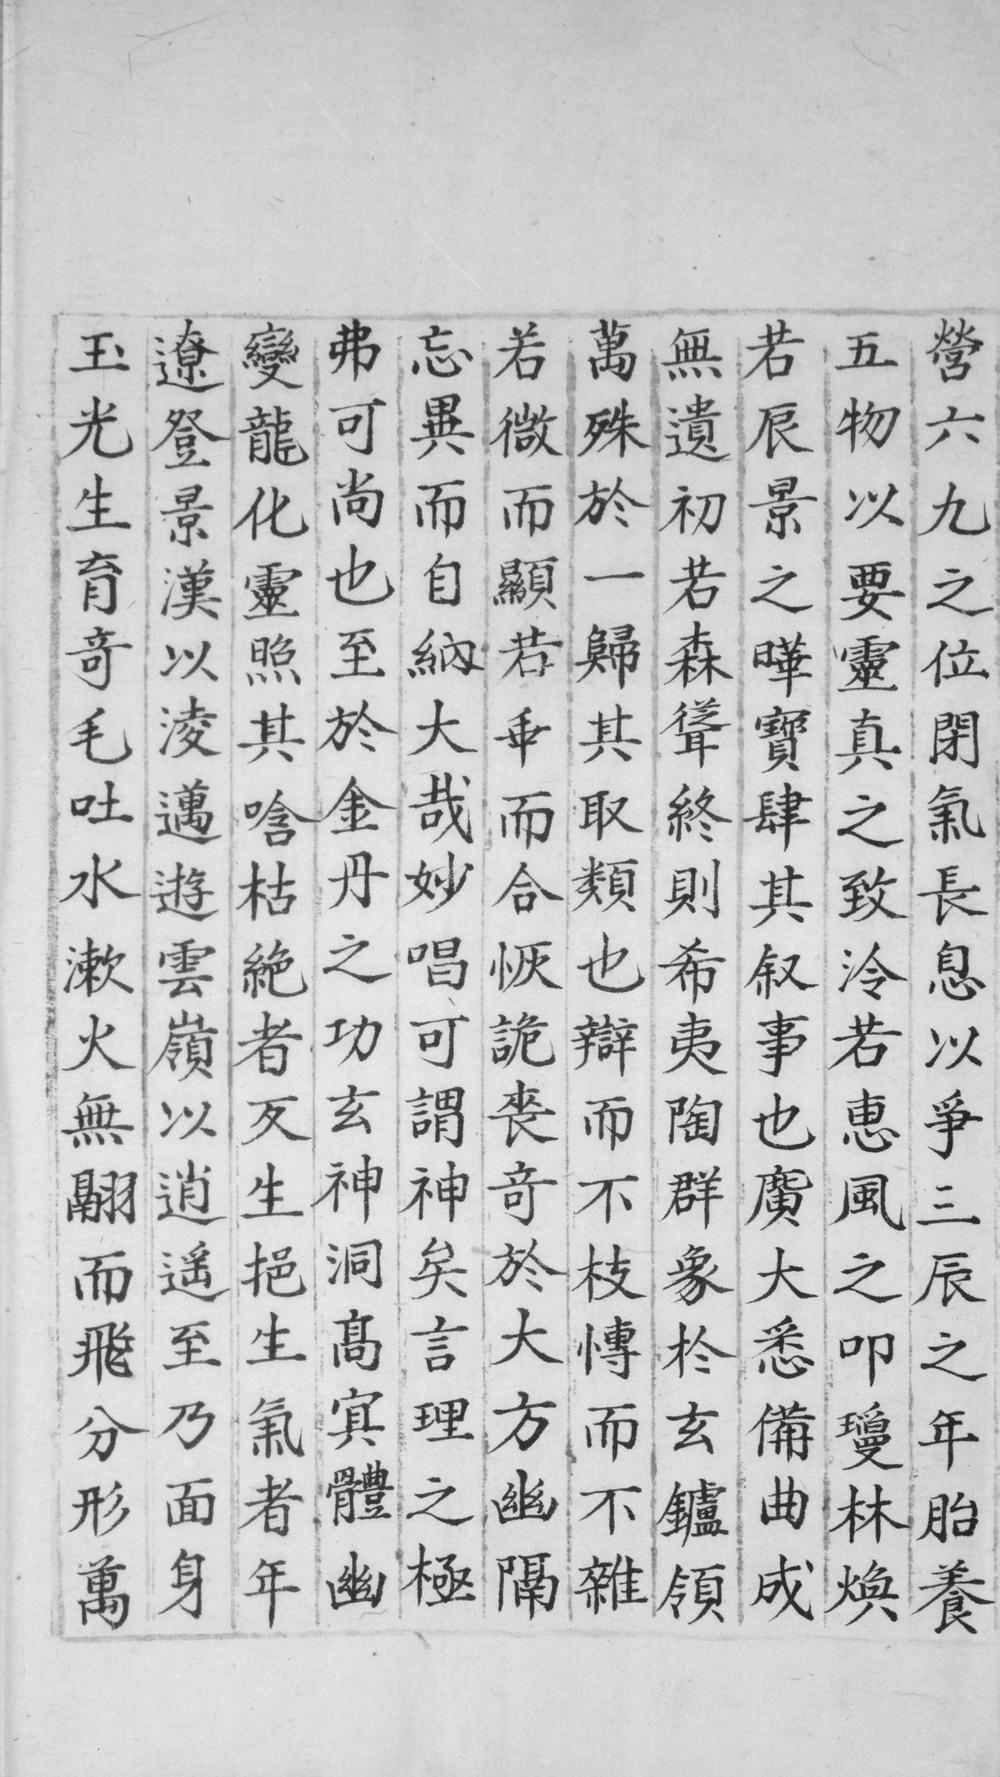 營六九之位閉氣長息以爭三辰之年胎養
五物以要靈真之致泠若恵風之叩瓊林煥
若辰景之曄寶肆其叙事也廣大悉備曲成
無遺初若森聳終則希夷陶群象於玄鑪領
萬殊於一歸其取類也辯而不枝慱而不雜
若微而顯若乖而合恢詭喪奇於大方幽隔
忘異而自納大哉妙唱可謂神矣言理之極
弗可尚也至於金丹之功玄神洞髙寘體幽
變龍化靈照其唅枯絶者反生挹生氣者年
遼登景漢以淩邁遊雲嶺以逍遥至乃面身
玉光生育竒毛吐水漱火無翮而飛分形萬